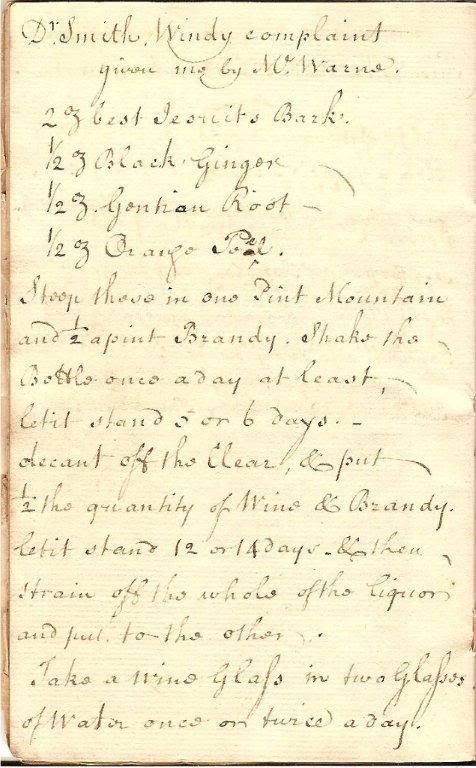 Dr. Smith. Windy complaint
given me by Mr. Warne.
2 ℥ best Jesuits Bark.
1/2 ℥ Black Ginger
1/2 ℥ Gentian Root –
1/2 ℥ Orange Peel.
Steep these in one Pint Mountain
and 1/2 apint Brandy. Shake the
Bottle once a day at least,
letit stand 5 or 6 days. –
decant off the Clear, & put
1/2 the quantity of Wine & Brandy.
letit stand 12 or 14 days - & then
strain off the whole of the liquor
and put to the other.
Take a Wine Glaſs in two Glaſses
of Water once or twice a day.